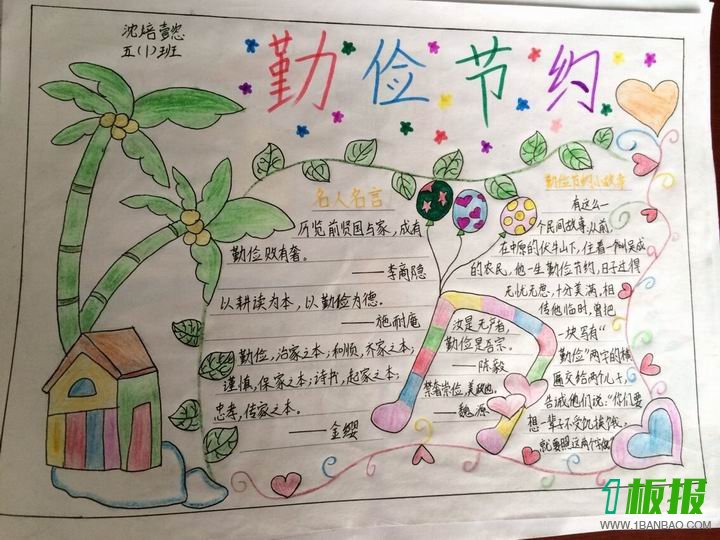 沈培懿
五(1)班
勤俭节约
名人名言
历览前贤国与家，成有
勤俭败有奢。
——李商隐
以耕读为本，以勤俭为德。
——施耐庵
勤俭，治家之本；和顺，齐家之本；
谨慎，保家之本；诗书，起家之本；
忠孝，传家之本。
——金缨
汝是无产者，
勤俭是吾宗。
——陈毅
禁奢崇俭，美政也
——魏源
勤俭节约小故事
有这么一
个民间故事，从前，
在中原的伏牛山下，住着一个叫吴成
的农民，他一生勤俭节约，日子过得
无忧无愁，十分美满，相
传他临终时，曾把
一块写有“
勤俭”两字的横
匾交给两个儿子，
告诫他们说：“你们要
想一辈子不受饥挨饿，
就要照这两个字做
1板报
WWW.1BANBAO.COM